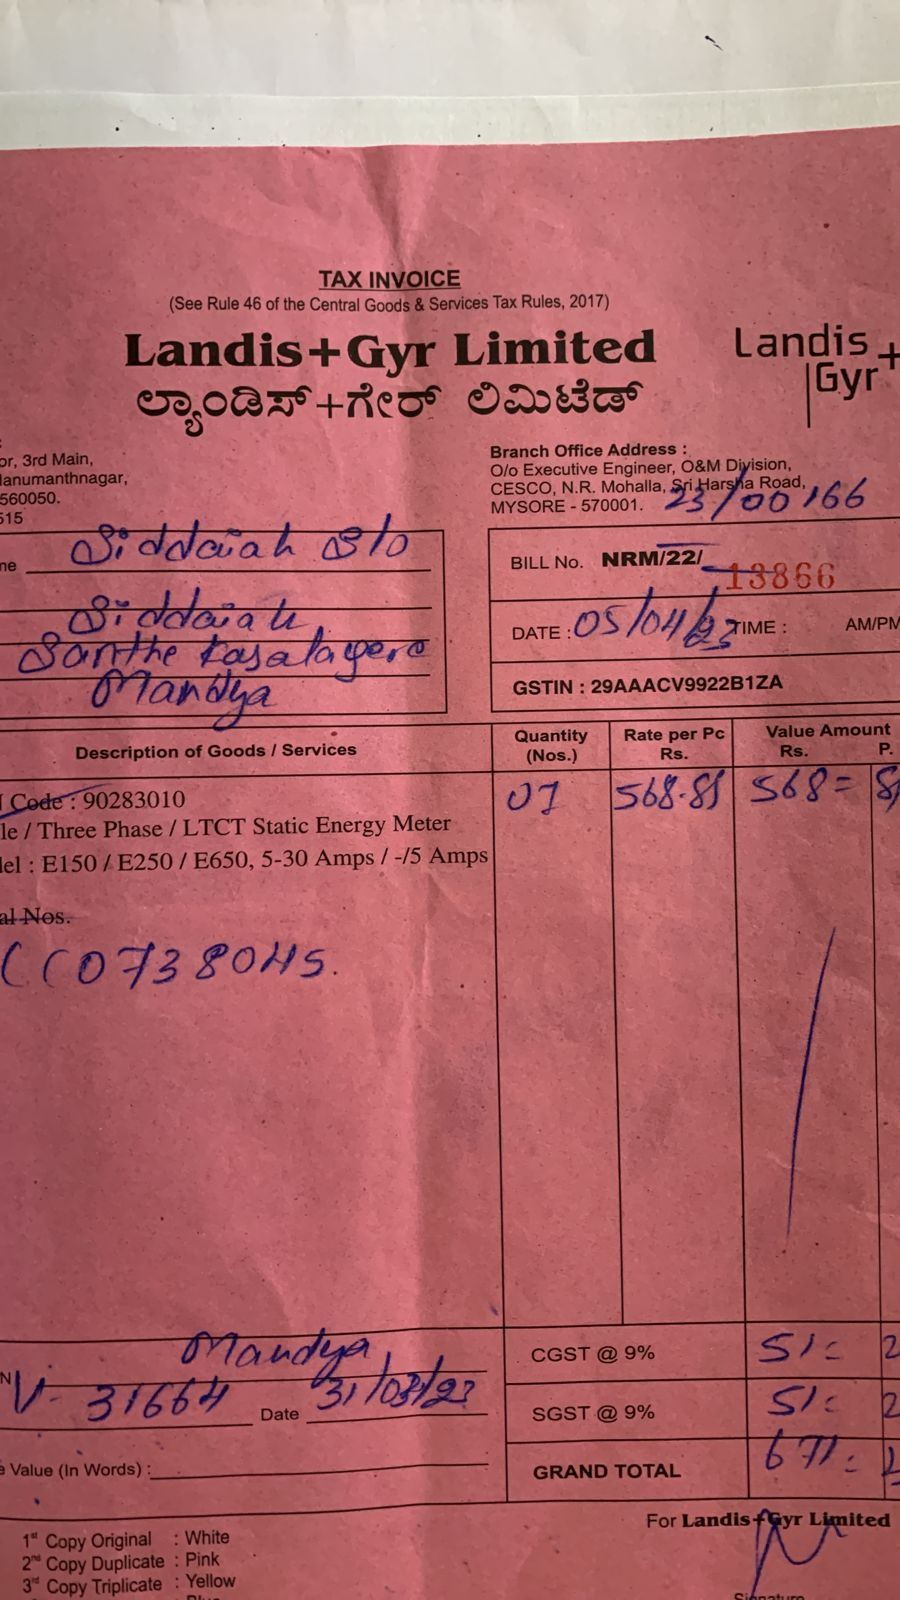 TAX INVOICE
(See Rule 46 of the Central Goods & Services Tax Rules, 2017)
Landis+Gyr Limited
ಲ್ಯಾಂಡಿಸ್+ಗೇರ್ ಲಿಮಿಟೆಡ್
Landis+
Gyr
or, 3rd Main,
anumanthnagar,
560050.
515
Branch Office Address :
O/o Executive Engineer, O&M Division,
CESCO, N.R. Mohalla, Sri Harsha Road,
MYSORE - 570001. 23/00166
ne Siddaiah S/o
Siddaiah
Santhe Kasalagere
Mandya
BILL No. NRM/22/ 13866
DATE : 05/04/23 TIME : AM/PM
GSTIN : 29AAACV9922B1ZA
Description of Goods / Services
Quantity (Nos.)
Rate per Pc Rs.
Value Amount Rs. P.
Code : 90283010 01 568.81 568= 8
le / Three Phase / LTCT Static Energy Meter
el : E150 / E250 / E650, 5-30 Amps / -/5 Amps
al Nos.
0738045.
Mandya
N V- 31664 Date 31/03/23
Value (In Words) :
CGST @ 9% 51= 2
SGST @ 9% 51= 2
GRAND TOTAL 671=
For Landis+Gyr Limited
1st Copy Original : White
2nd Copy Duplicate : Pink
3rd Copy Triplicate : Yellow
Signature